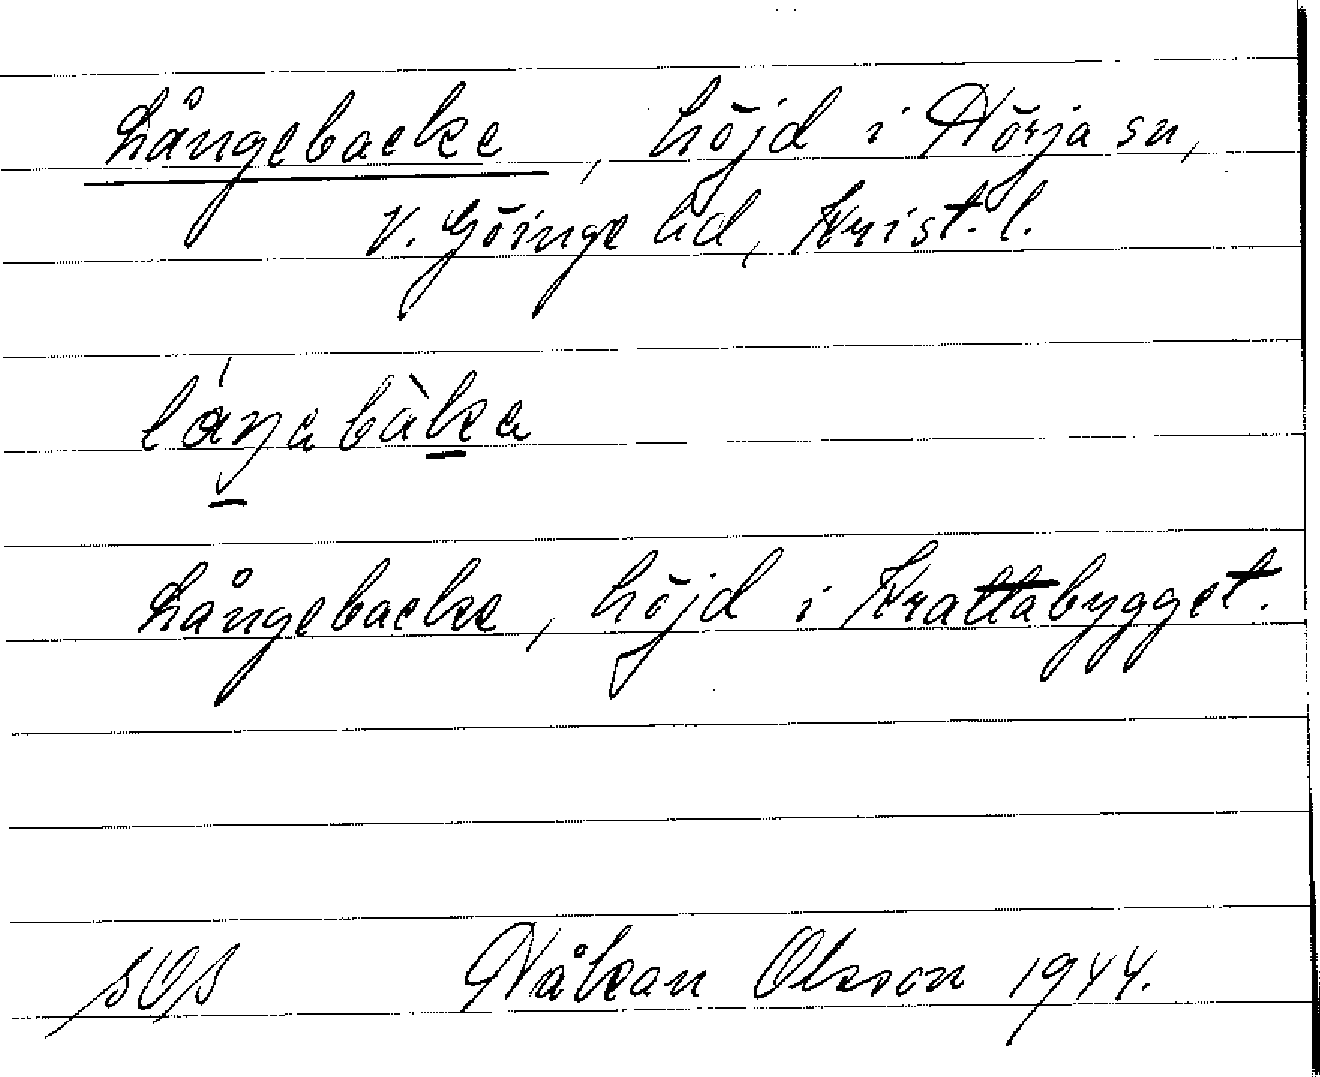 Långebacke, höjd i Hörja sn,
V. Göinge hd, Krist. l.
láŋabàka
Långebacke, höjd i Krattabygget.
SOS Håkan Olsson 1944.